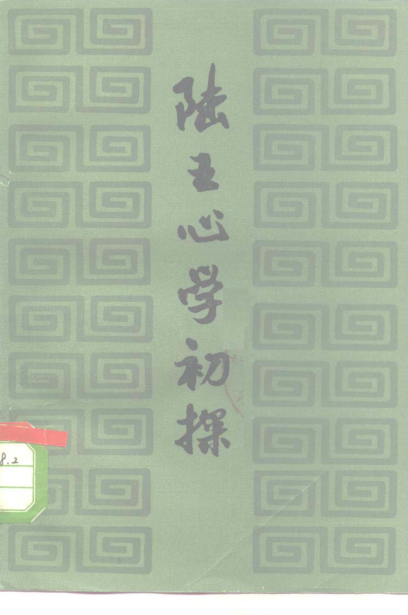 陆王心学初探
8.2